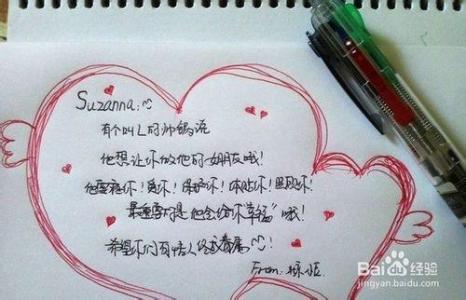 Suzanna:
有个叫L的帅锅说
他想让你做他的女朋友哦!
他要疼你!爱你!保护你!体贴你!照顾你!
最重要的是他会给你幸福”哦!
希望你们有情人终成眷属
From:
Baidu 经验
jingyan.baidu.com